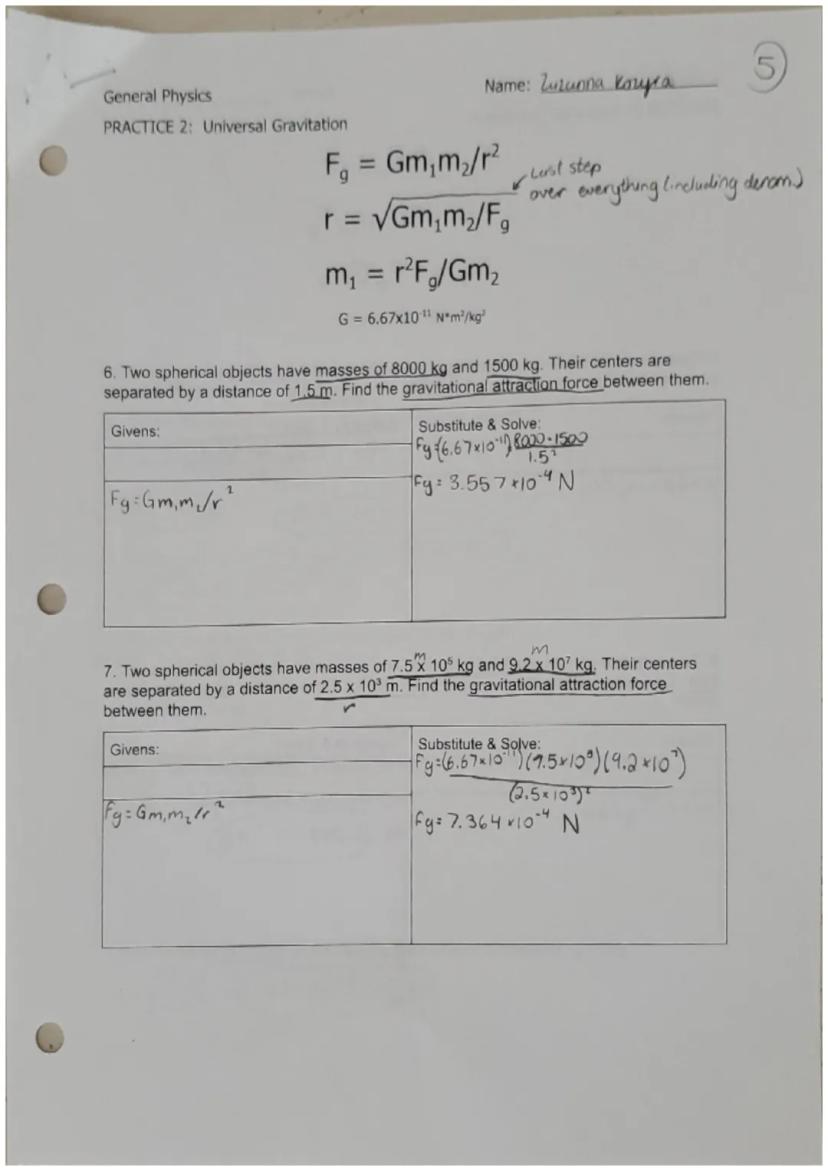 5
General Physics
Name: Zuzanna
PRACTICE 2: Universal Gravitation
Fg = Gm₁m₂/r²
Last step
over everything (including denom.)
r = √Gm₁m₂/Fg
m₁ = r²Fg/Gm₂
G = 6.67x10⁻¹¹ N*m²/kg²
6. Two spherical objects have masses of 8000 kg and 1500 kg. Their centers are
separated by a distance of 1.5 m. Find the gravitational attraction force between them.
Givens:
Fg = Gm₁m₂/r²
Substitute & Solve:
Fg=(6.67x10⁻¹¹) 8000·1500
1.5²
Fg = 3.557x10⁻⁴ N
m m
7. Two spherical objects have masses of 7.5 x 10⁵ kg and 9.2 x 10⁷ kg. Their centers
are separated by a distance of 2.5 x 10³ m. Find the gravitational attraction force
r
between them.
Givens:
Fg = Gm₁m₂/r²
Substitute & Solve:
Fg=(6.67x10⁻¹¹)(7.5x10⁵)(9.2x10⁷)
(2.5x10³)²
Fg= 7.364x10⁻⁴ N